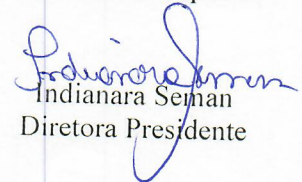 Indianara Seman
Diretora Presidente